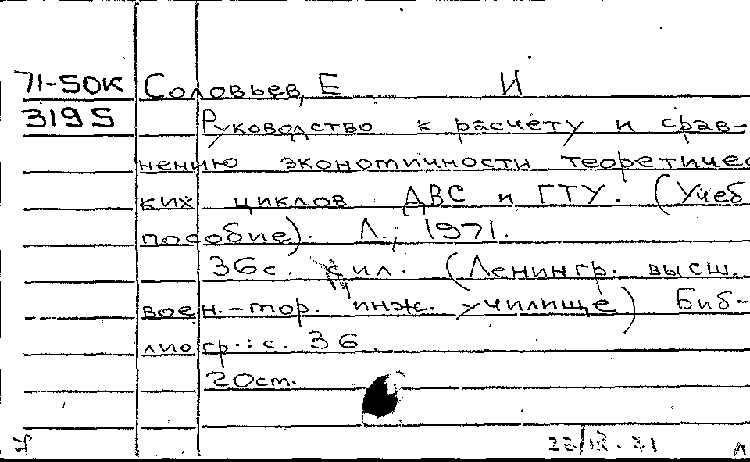 71-50К Соловьев, Е И
3195 Руководство к расчёту и срав-
нению экономичности теоретичес
ких циклов ДВС и ГТУ. (Учеб
пособие). Л., 1971.
36с. с ил. (Ленингр. высш.
воен.-мор. инж. училище) Биб-
лиогр.: с. 36.
20см.